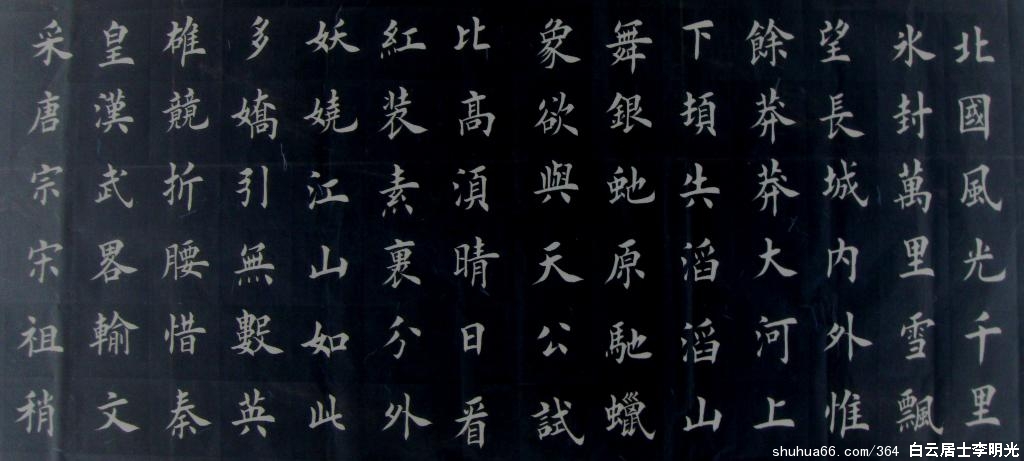 北國風光千里
氷封萬里雪飄
望長城内外惟
餘莽莽大河上
下頓失滔滔山
舞銀虵原馳蠟
象欲與天公試
比高湏晴日看
紅装素裹分外
妖嬈江山如此
多嬌引無數英
雄競折腰惜秦
皇漢武畧輸文
采唐宗宋祖稍
shuhua66.com/364 白云居士李明光